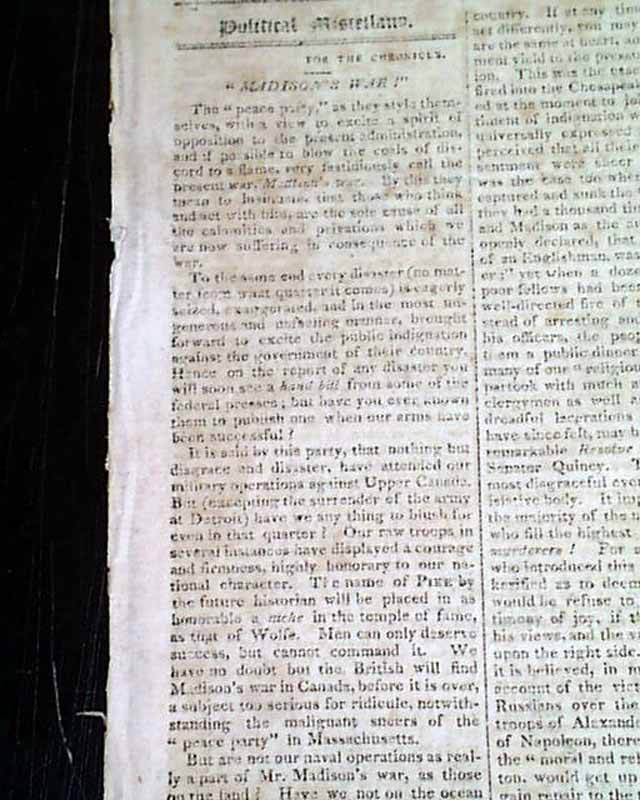 Political Miscellany.
FOR THE CHRONICLE.
"MADISON'S WAR!"
The "peace party," as they style them-
selves, with a view to excite a spirit of
opposition to the present administration,
and if possible to blow the coals of dis-
cord to a flame, very fastidiously call the
present war, Madison's war. By this they
mean to insinuate, that those who think
and act with him, are the sole cause of all
the calamities and privations which we
are now suffering in consequence of the
war.
To the same end every disaster (no mat-
ter from what quarter it comes) is eagerly
seized, exaggerated, and in the most un-
generous and unfeeling manner, brought
forward to excite the public indignation
against the government of their country.
Hence on the report of any disaster you
will soon see a hand bill from some of the
federal presses; but have you ever known
them to publish one when our arms have
been successful?
It is said by this party, that nothing but
disgrace and disaster, have attended our
military operations against Upper Canada.
But (excepting the surrender of the army
at Detroit) have we any thing to blush for
even in that quarter? Our raw troops in
several instances have displayed a courage
and firmness, highly honorary to our na-
tional character. The name of PIKE by
the future historian will be placed in as
honorable a niche in the temple of fame,
as that of Wolfe. Men can only deserve
success, but cannot command it. We
have no doubt but the British will find
Madison's war in Canada, before it is over,
a subject too serious for ridicule, notwith-
standing the malignant sneers of the
"peace party" in Massachusetts.
But are not our naval operations as real-
ly a part of Mr. Madison's war, as those
on the land? Have we not on the ocean
country. If at any tim
act differently, you may
are the same at heart, an
ment yield to the pressu
ion. This was the case
fired into the Chesapea
ed at the moment to jo
timent of indignation w
universally expressed
perceived that all their
sentment were sheer
was the case too when
captured and sunk the
they had a thousand tim
and Madison as the au
openly declared, that
of an Englishman, was
er;" yet when a doze
poor fellows had been
well-directed fire of
stead of arresting and
his officers, the peop
them a public dinner
many of our "religiou
partook with much
clergymen as well a
dreadful lacerations
have since felt, may b
remarkable Resolve
Senator Quincy. T
most disgraceful ever
islative body. It im
the majority of the
who fill the highest
murderers! For
who introduced this
kerified as to deem
would be refuse to
timony of joy, if t
his views, and the w
upon the right side.
it is believed, in m
account of the vict
Russians over the
troops of Alexande
of Napoleon, there
the "moral and rel
ton, would get up
gain repair to the